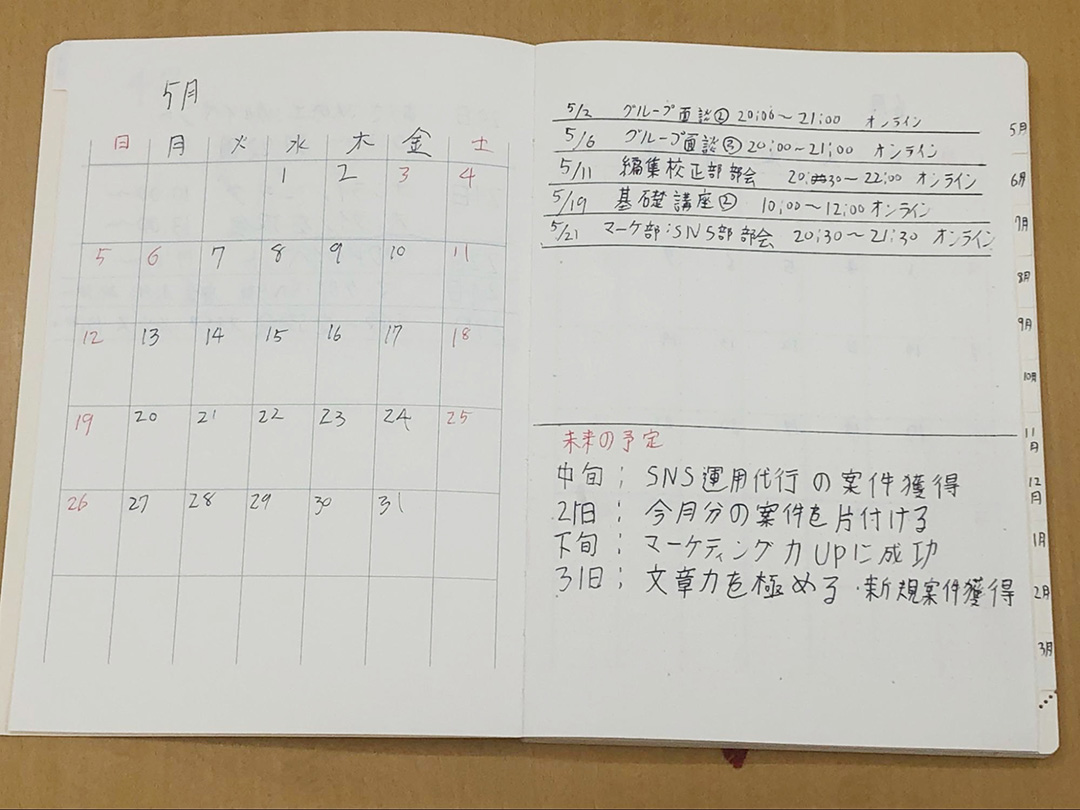 5月
日 月 火 水 木 金 土
1 2 3 4
5 6 7 8 9 10 11
12 13 14 15 16 17 18
19 20 21 22 23 24 25
26 27 28 29 30 31
5/2 グループ面談② 20:00~21:00 オンライン
5/6 グループ面談③ 20:00~21:00 オンライン
5/11 編集校正部部会 20:30~22:00 オンライン
5/19 基礎講座② 10:00~12:00 オンライン
5/21 マーケ部:SNS部部会 20:30~21:30 オンライン
未来の予定
中旬; SNS運用代行の案件獲得
21日; 今月分の案件を片付ける
下旬; マーケティング力UPに成功
31日; 文章力を極める・新規案件獲得
5月
6月
7月
8月
9月
10月
11月
12月
1月
2月
3月